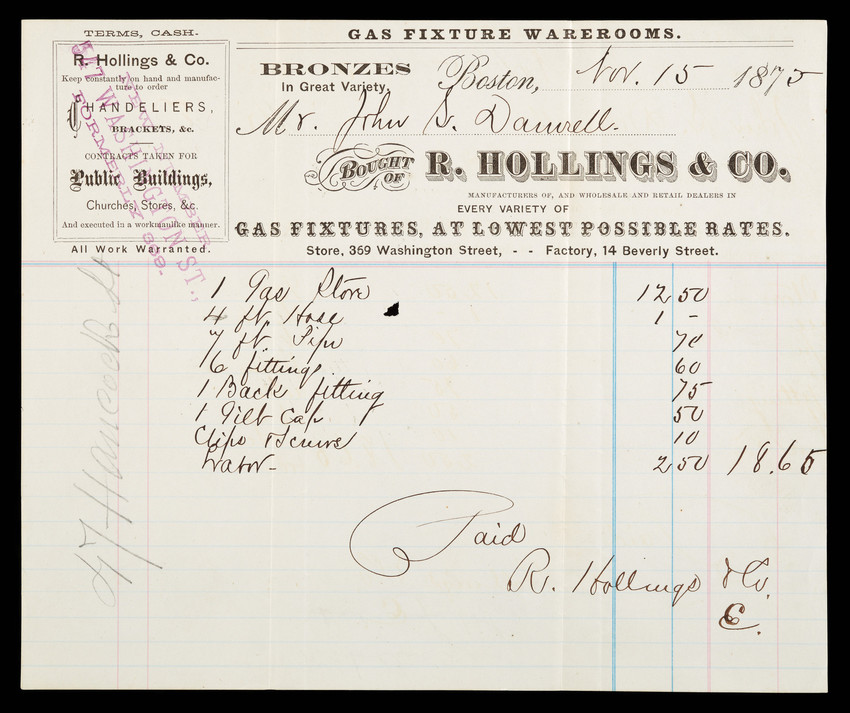 TERMS, CASH.
R. Hollings & Co.
Keep constantly on hand and manufac-
ture to order
CHANDELIERS,
BRACKETS, &c.
CONTRACTS TAKEN FOR
Public Buildings,
Churches, Stores, &c.
And executed in a workmanlike manner.
All Work Warranted.
NUMBER
547 WASHINGTON ST.,
FORMERLY 369.
GAS FIXTURE WAREROOMS.
BRONZES
In Great Variety,
Boston, Nov. 15 1875
Mr. John S. Damrell.
BOUGHT OF R. HOLLINGS & CO.
MANUFACTURERS OF, AND WHOLESALE AND RETAIL DEALERS IN
EVERY VARIETY OF
GAS FIXTURES, AT LOWEST POSSIBLE RATES.
Store, 369 Washington Street, - - Factory, 14 Beverly Street.
1 Gas Stove 12 50
4 ft. Hose 1 -
7 ft. Pipe 70
6 fittings 60
1 Back fitting 75
1 Cap 50
Clips & Screws 10
Labor - 2 50 18.65
Paid
R. Hollings & Co.
E.
47 Hancock St